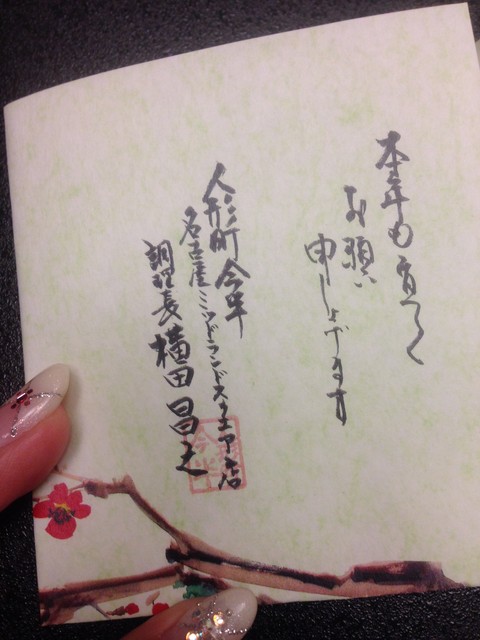 本年も宜しく
お願い
申しあげます
人形町今半
名古屋ミッドランドスクエア店
調理長 横田昌之